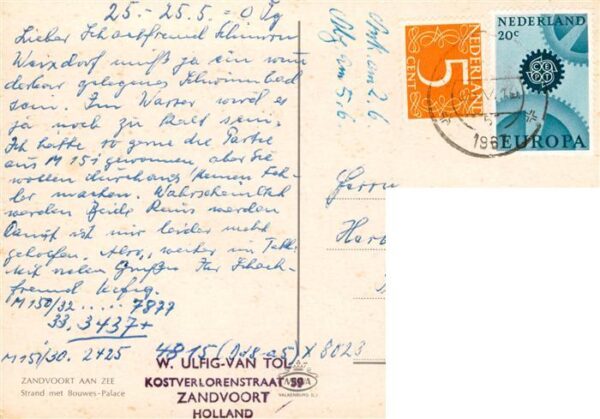 25. - 25.5. = 0 Tg
Lieber Schachfreund Schimon
Weixdorf muß ja ein wun
derbar gelegenes Schwimmbad
sein. Im Wasser wird es
ja noch zu kalt sein.
Ich hätte so gerne die Partie
aus M 151 gewonnen, aber Sie
wollen durchaus keinen Feh-
ler machen. Wahrscheinlich
werden Beide Remis werden
Damit ist mir leider nicht
geholfen. Also, weiter im Text.
Mit vielen Grüßen Ihr Schach-
freund Ulfig.
M 150/32 ..... 7877
33. 3437+
M 151/30. 2425 4815 (Dd8-a5) x 8023
Ank. am 2.6.
Abg. am 5.6.
5 CENT
NEDERLAND
NEDERLAND
20c
CEPT
EUROPA
1967
Herrn
W. ULFIG-VAN TOL
KOSTVERLORENSTRAAT 59
ZANDVOORT
HOLLAND
VALKENBURG (L.)
ZANDVOORT AAN ZEE
Strand met Bouwes-Palace